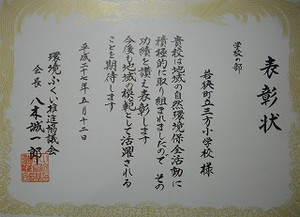 表彰状
学校の部
若狭町立三方小学校 様
貴校は地域の自然環境保全活動に
積極的に取り組まれましたので その
功績を讃え表彰します
今後も地域の模範として活躍される
ことを期待します
平成二十七年五月十二日
環境ふくい推進協議会
会長 八木誠一郎